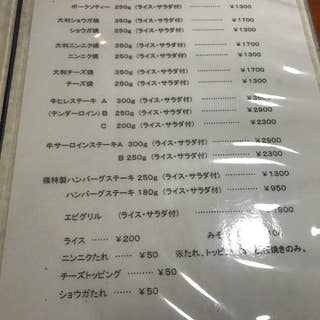 ポークソティー 250g (ライス・サラダ付) ………… ¥1300
大判ショウガ焼 350g (ライス・サラダ付) ………… ¥1700
ショウガ焼 250g (ライス・サラダ付) ………… ¥1300
大判ニンニク焼 350g (ライス・サラダ付) ………… ¥1700
ニンニク焼 250g (ライス・サラダ付) ………… ¥1300
大判チーズ焼 350g (ライス・サラダ付) ………… ¥1700
チーズ焼 250g (ライス・サラダ付) ………… ¥1300
牛ヒレステーキ A 300g (ライス・サラダ付)
(テンダーロイン) B 250g (ライス・サラダ付) ………… ¥2900
C 200g (ライス・サラダ付) ………… ¥2300
牛サーロインステーキA 300g (ライス・サラダ付) ………… ¥2900
B 250g (ライス・サラダ付) ………… ¥2300
特製ハンバーグステーキ 250g (ライス・サラダ付) ………… ¥1300
ハンバーグステーキ 180g (ライス・サラダ付) ………… ¥950
エビグリル (ライス・サラダ付) ………… 900
ライス …… ¥200
みそ
ニンニクたれ …… ¥50 ※たれ、トッピ 焼きのみ。
チーズトッピング …… ¥50
ショウガたれ …… ¥50